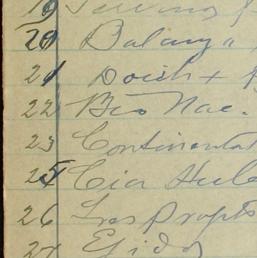 19
20 Balany "
21 Doish +
22 Bco Nac.
23 Continental
25 Cia Hule
26 Tres Propts
27 Ejido